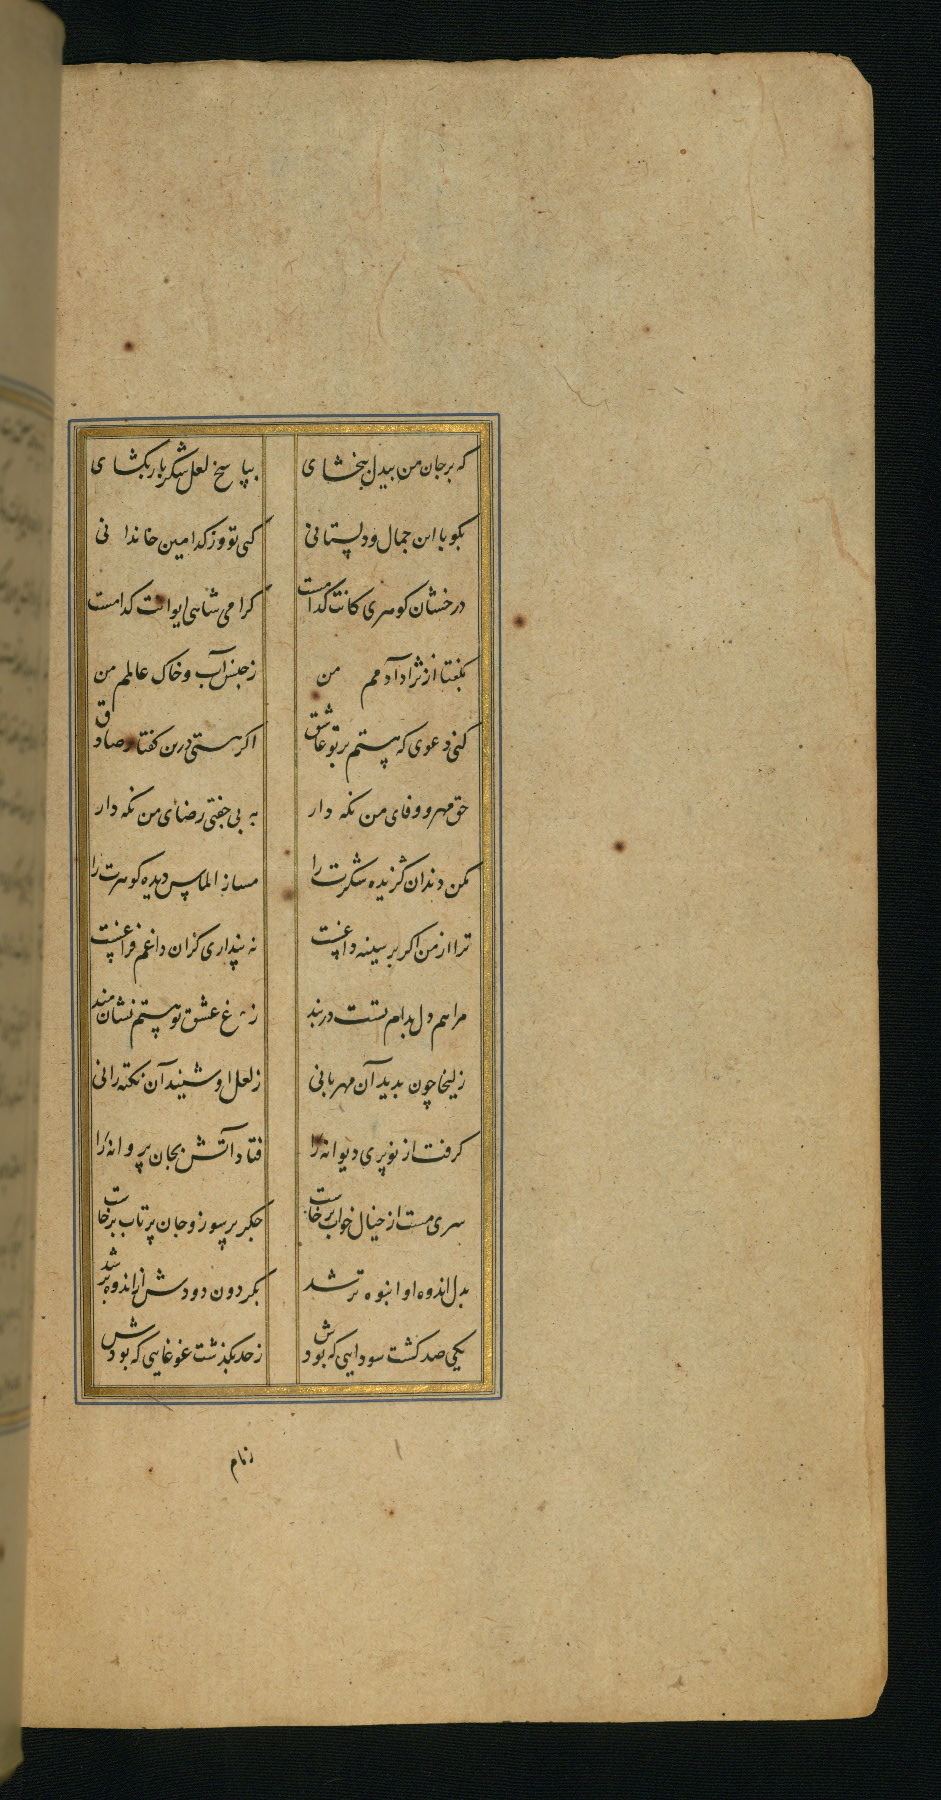 که بر جان من بیدل ببخشای
بپاسخ لعل شکر بار بکشای
بکو با این جمال و دلستانی
کی تو وز کدامین خاندانی
درخشان کوهری کانت کدامست
کرامی شاهی ایوانت کدامست
بکفتا از نژاد آدمم من
ز جنس آب و خاک عالمم من
کنی دعوی که هستم بر تو عاشق
اکر هستی درین کفتار صادق
حق مهر و وفای من نکه دار
به بی جفتی رضای من نکه دار
مکن دندان کزیده شکرت را
مساز الماس دیده کوهرت را
ترا از من اکر بر سینه داغیست
نه پنداری کزان داغم فراغیست
مرا هم دل بدام تست در بند
ز داغ عشق تو هستم نشان مند
زلیخا چون بدید آن مهربانی
ز لعل او شنید آن نکته رانی
کرفت از نو پری دیوانه را
فتاد آتش بجان پروانه را
سری مست از خیال خواب برخاست
جکر پر سوز و جان پر تاب برخاست
بدل اندوه او انبوه تر شد
بکردون دودش از اندوه بر شد
یکی صد کشت سودایی که بودش
ز حد بکذشت غوغایی که بودش
زمام